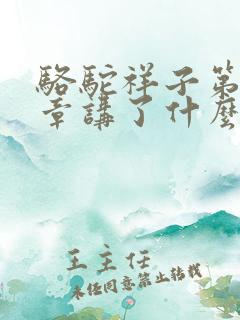 駱駝祥子第
章講了什麼
王主任
未经同意禁止转载